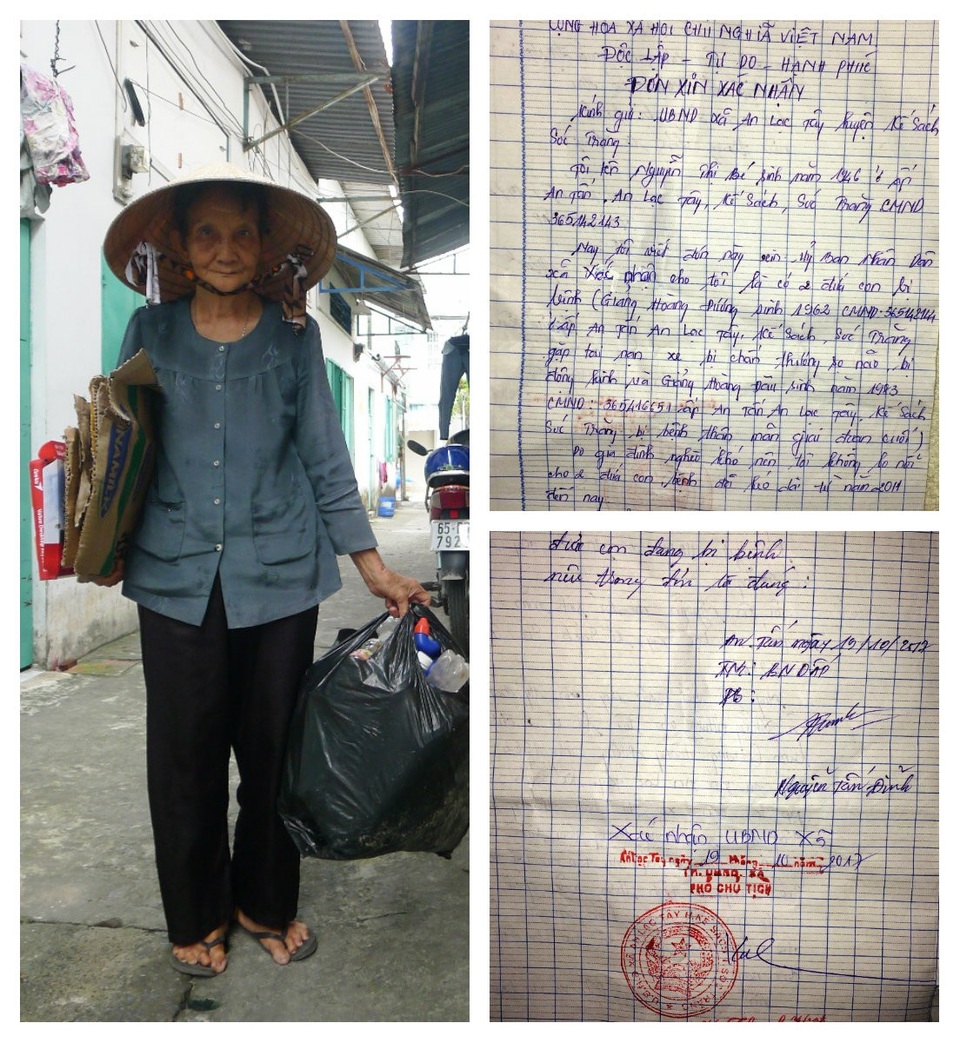 65
792
CỘNG HÒA XÃ HỘI CHỦ NGHĨA VIỆT NAM
ĐỘC LẬP - TỰ DO - HẠNH PHÚC
ĐƠN XIN XÁC NHẬN
Kính gửi: UBND xã An Lạc Tây huyện Kế Sách
Sóc Trăng
Tôi tên Nguyễn Thị Bé sinh năm 1946 ở ấp
An Tấn, An Lạc Tây, Kế Sách, Sóc Trăng CMND
365142143
Nay tôi viết đơn này xin Uỷ Ban Nhân Dân
xã Xác nhận cho tôi là có 2 đứa con bị
bệnh (Giang Hoàng sinh 1962 CMND:365142144
ở ấp An Tấn An Lạc Tây, Kế Sách, Sóc Trăng
gặp tai nạn xe bị chấn thương sọ não, bị
động kinh và Giang Hoàng sinh năm 1983
CMND: 365416651 ấp An Tấn An Lạc Tây, Kế Sách
Sóc Trăng bị bệnh thận mãn giai đoạn cuối)
Do gia đình nghèo khó nên tôi không lo nổi
cho 2 đứa con, bệnh đã kéo dài từ năm 2011
đến nay
đứa con đang bị bệnh
nêu trong đơn là đúng:
An Tấn ngày 19/10/2017
TM: BND ẤP
PB:
Nguyễn Tấn Đình
Xác nhận UBND Xã
An Lạc Tây, ngày 19 tháng 10 năm 2017
PHÓ CHỦ TỊCH